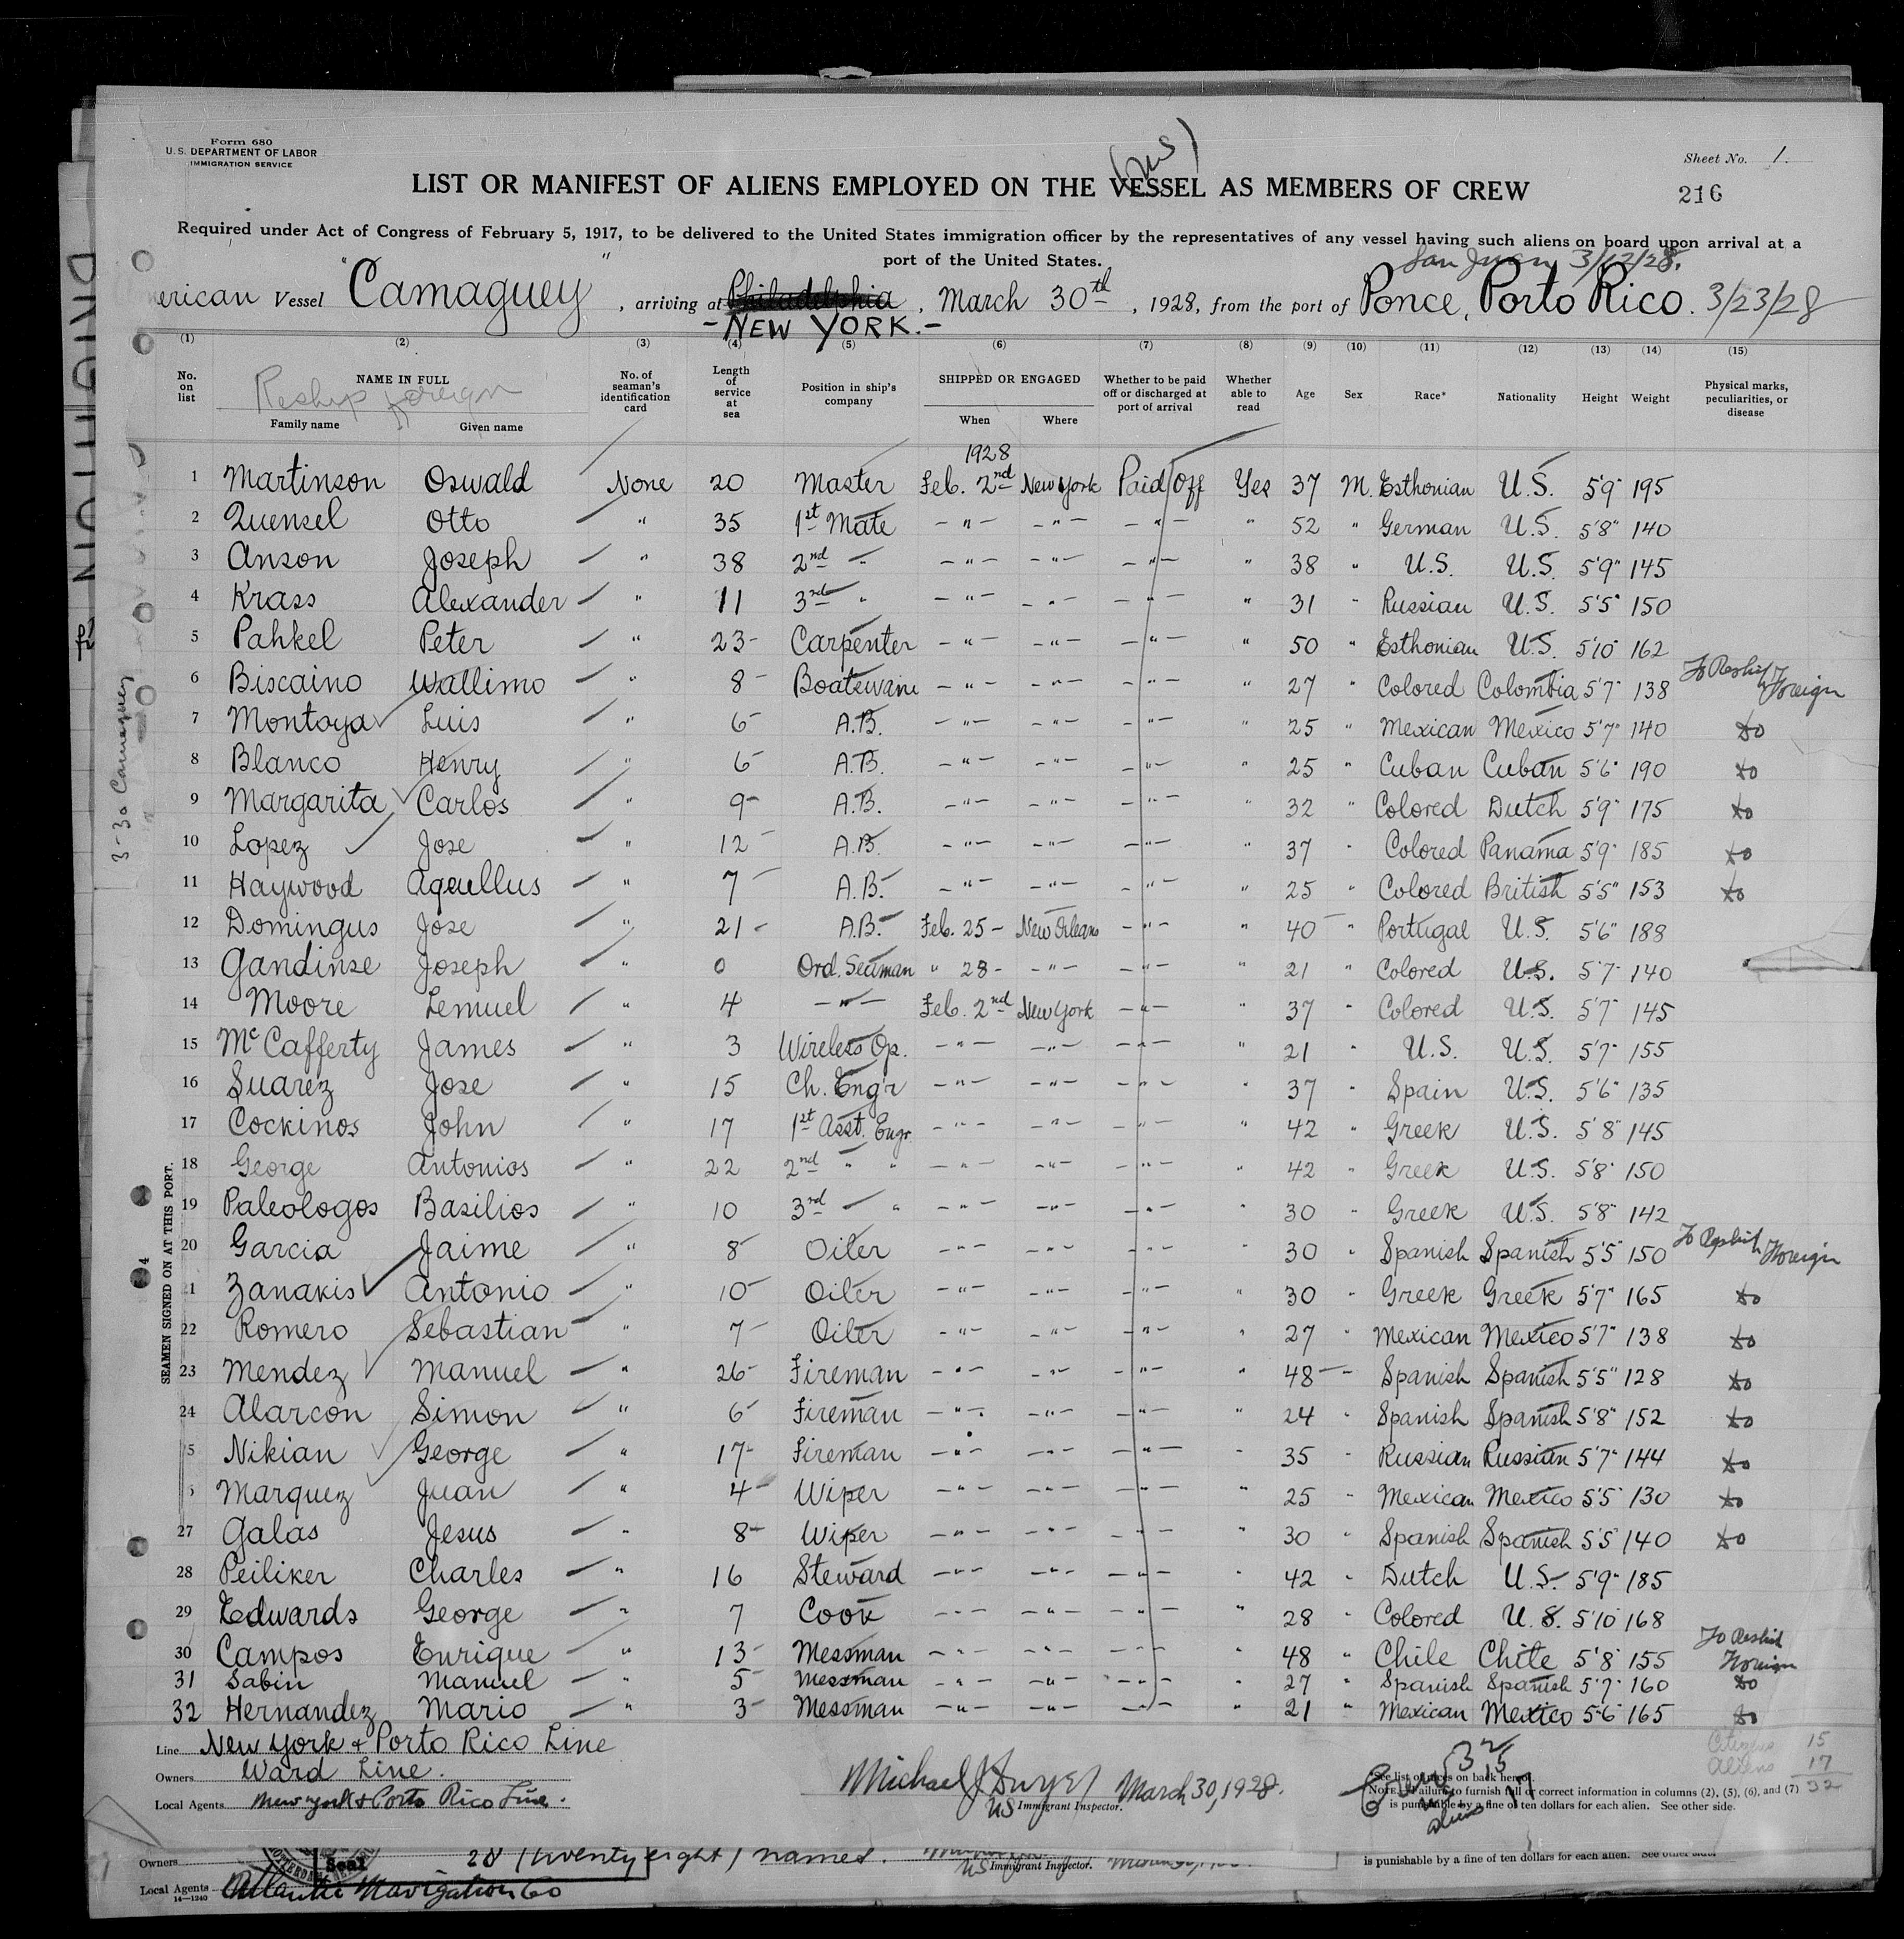 Form 680
U.S. DEPARTMENT OF LABOR
IMMIGRATION SERVICE
Sheet No. 1.
216
LIST OR MANIFEST OF ALIENS EMPLOYED ON THE VESSEL AS MEMBERS OF CREW
Required under Act of Congress of February 5, 1917, to be delivered to the United States immigration officer by the representatives of any vessel having such aliens on board upon arrival at a
port of the United States.
San Juan 3/12/28.
erican Vessel "Camaguey", arriving at Philadelphia, March 30th, 1928, from the port of Ponce, Porto Rico. 3/23/28
- NEW YORK. -
(1) (2) (3) (4) (5) (6) (7) (8) (9) (10) (11) (12) (13) (14) (15)
No. on list NAME IN FULL No. of seaman's identification card Length of service at sea Position in ship's company SHIPPED OR ENGAGED Whether to be paid off or discharged at port of arrival Whether able to read Age Sex Race* Nationality Height Weight Physical marks, peculiarities, or disease
Reship foreign
Family name Given name When Where
1928
1 Martinson Oswald None 20 Master Feb. 2nd New York Paid Off Yes 37 M. Esthonian U.S. 5'9" 195
2 Quensel Otto " 35 1st Mate - " - - " - - " - " 52 " German U.S. 5'8" 140
3 Anson Joseph " 38 2nd " - " - - " - - " - " 38 " U.S. U.S. 5'9" 145
4 Krass Alexander " 11 3rd " - " - - " - - " - " 31 " Russian U.S. 5'5" 150
5 Pahkel Peter " 23 - Carpenter - " - - " - - " - " 50 " Esthonian U.S. 5'10" 162
6 Biscaino Wallimo " 8 - Boatswain - " - - " - - " - " 27 " Colored Colombia 5'7" 138 To Reship Foreign
7 Montoya Luis " 6 - A.B. - " - - " - - " - " 25 " Mexican Mexico 5'7" 140 do
8 Blanco Henry " 6 - A.B. - " - - " - - " - " 25 " Cuban Cuban 5'6" 190 do
9 Margarita Carlos " 9 - A.B. - " - - " - - " - " 32 " Colored Dutch 5'9" 175 do
10 Lopez Jose " 12 - A.B. - " - - " - - " - " 37 " Colored Panama 5'9" 185 do
11 Haywood " 7 - A.B. - " - - " - - " - " 25 " Colored British 5'5" 153 do
12 Domingus Jose " 21 - A.B. Feb. 25 - New Orleans - " - " 40 - " Portugal U.S. 5'6" 188
13 Gandinse Joseph " 0 Ord. Seaman " 28 - - " - - " - " 21 " Colored U.S. 5'7" 140
14 Moore Lemuel " 4 - " - Feb. 2nd New York - " - " 37 " Colored U.S. 5'7" 145
15 McCafferty James " 3 Wireless Op. - " - - " - - " - " 21 " U.S. U.S. 5'7" 155
16 Suarez Jose " 15 Ch. Eng'r - " - - " - - " - " 37 " Spain U.S. 5'6" 135
17 Cockinos John " 17 1st Asst. Engr. - " - - " - - " - " 42 " Greek U.S. 5'8" 145
18 George Antonios " 22 2nd " " - " - - " - - " - " 42 " Greek U.S. 5'8" 150
19 Paleologos Basilios " 10 3rd " " - " - - " - - " - " 30 " Greek U.S. 5'8" 142
20 Garcia Jaime " 8 - Oiler - " - - " - - " - " 30 " Spanish Spanish 5'5" 150 To Reship Foreign
21 Zanakis Antonio " 10 - Oiler - " - - " - - " - " 30 " Greek Greek 5'7" 165 do
22 Romero Sebastian " 7 - Oiler - " - - " - - " - " 27 " Mexican Mexico 5'7" 138 do
23 Mendez Manuel " 26 - Fireman - " - - " - - " - " 48 - " Spanish Spanish 5'5" 128 do
24 Alarcon Simon " 6 - Fireman - " - - " - - " - " 24 " Spanish Spanish 5'8" 152 do
5 Nikian George " 17 - Fireman - " - - " - - " - " 35 " Russian Russian 5'7" 144 do
Marquez Juan " 4 - Wiper - " - - " - - " - " 25 " Mexican Mexico 5'5" 130 do
27 Galas Jesus " 8 - Wiper - " - - " - - " - " 30 " Spanish Spanish 5'5" 140 do
28 Peiliker Charles " 16 Steward - " - - " - - " - " 42 " Dutch U.S. 5'9" 185
29 Edwards George " 7 Cook - " - - " - - " - " 28 " Colored U.S. 5'10" 168
30 Campos Enrique " 13 - Messman - " - - " - - " - " 48 " Chile Chile 5'8" 155 To Reship Foreign
31 Sabin Manuel " 5 - Messman - " - - " - - " - " 27 " Spanish Spanish 5'7" 160 do
32 Hernandez Mario " 3 - Messman - " - - " - - " - " 21 " Mexican Mexico 5'6" 165 do
SEAMEN SIGNED ON AT THIS PORT.
3-30 Camaguey
Line New York & Porto Rico Line
Owners Ward Line.
Local Agents New York & Porto Rico Line.
Michael J Dwyer March 30, 1928.
US Immigrant Inspector.
Citizens 15
Aliens 17
32
Crew 32
US 15
aliens 17
See list of races on back hereof.
NOTE.—Failure to furnish full or correct information in columns (2), (5), (6), and (7)
is punishable by a fine of ten dollars for each alien. See other side.
Owners
Seal
28 (twenty eight) names.
US Immigrant Inspector.
is punishable by a fine of ten dollars for each alien. See other side.
Local Agents Atlantic Navigation Co
14-1240